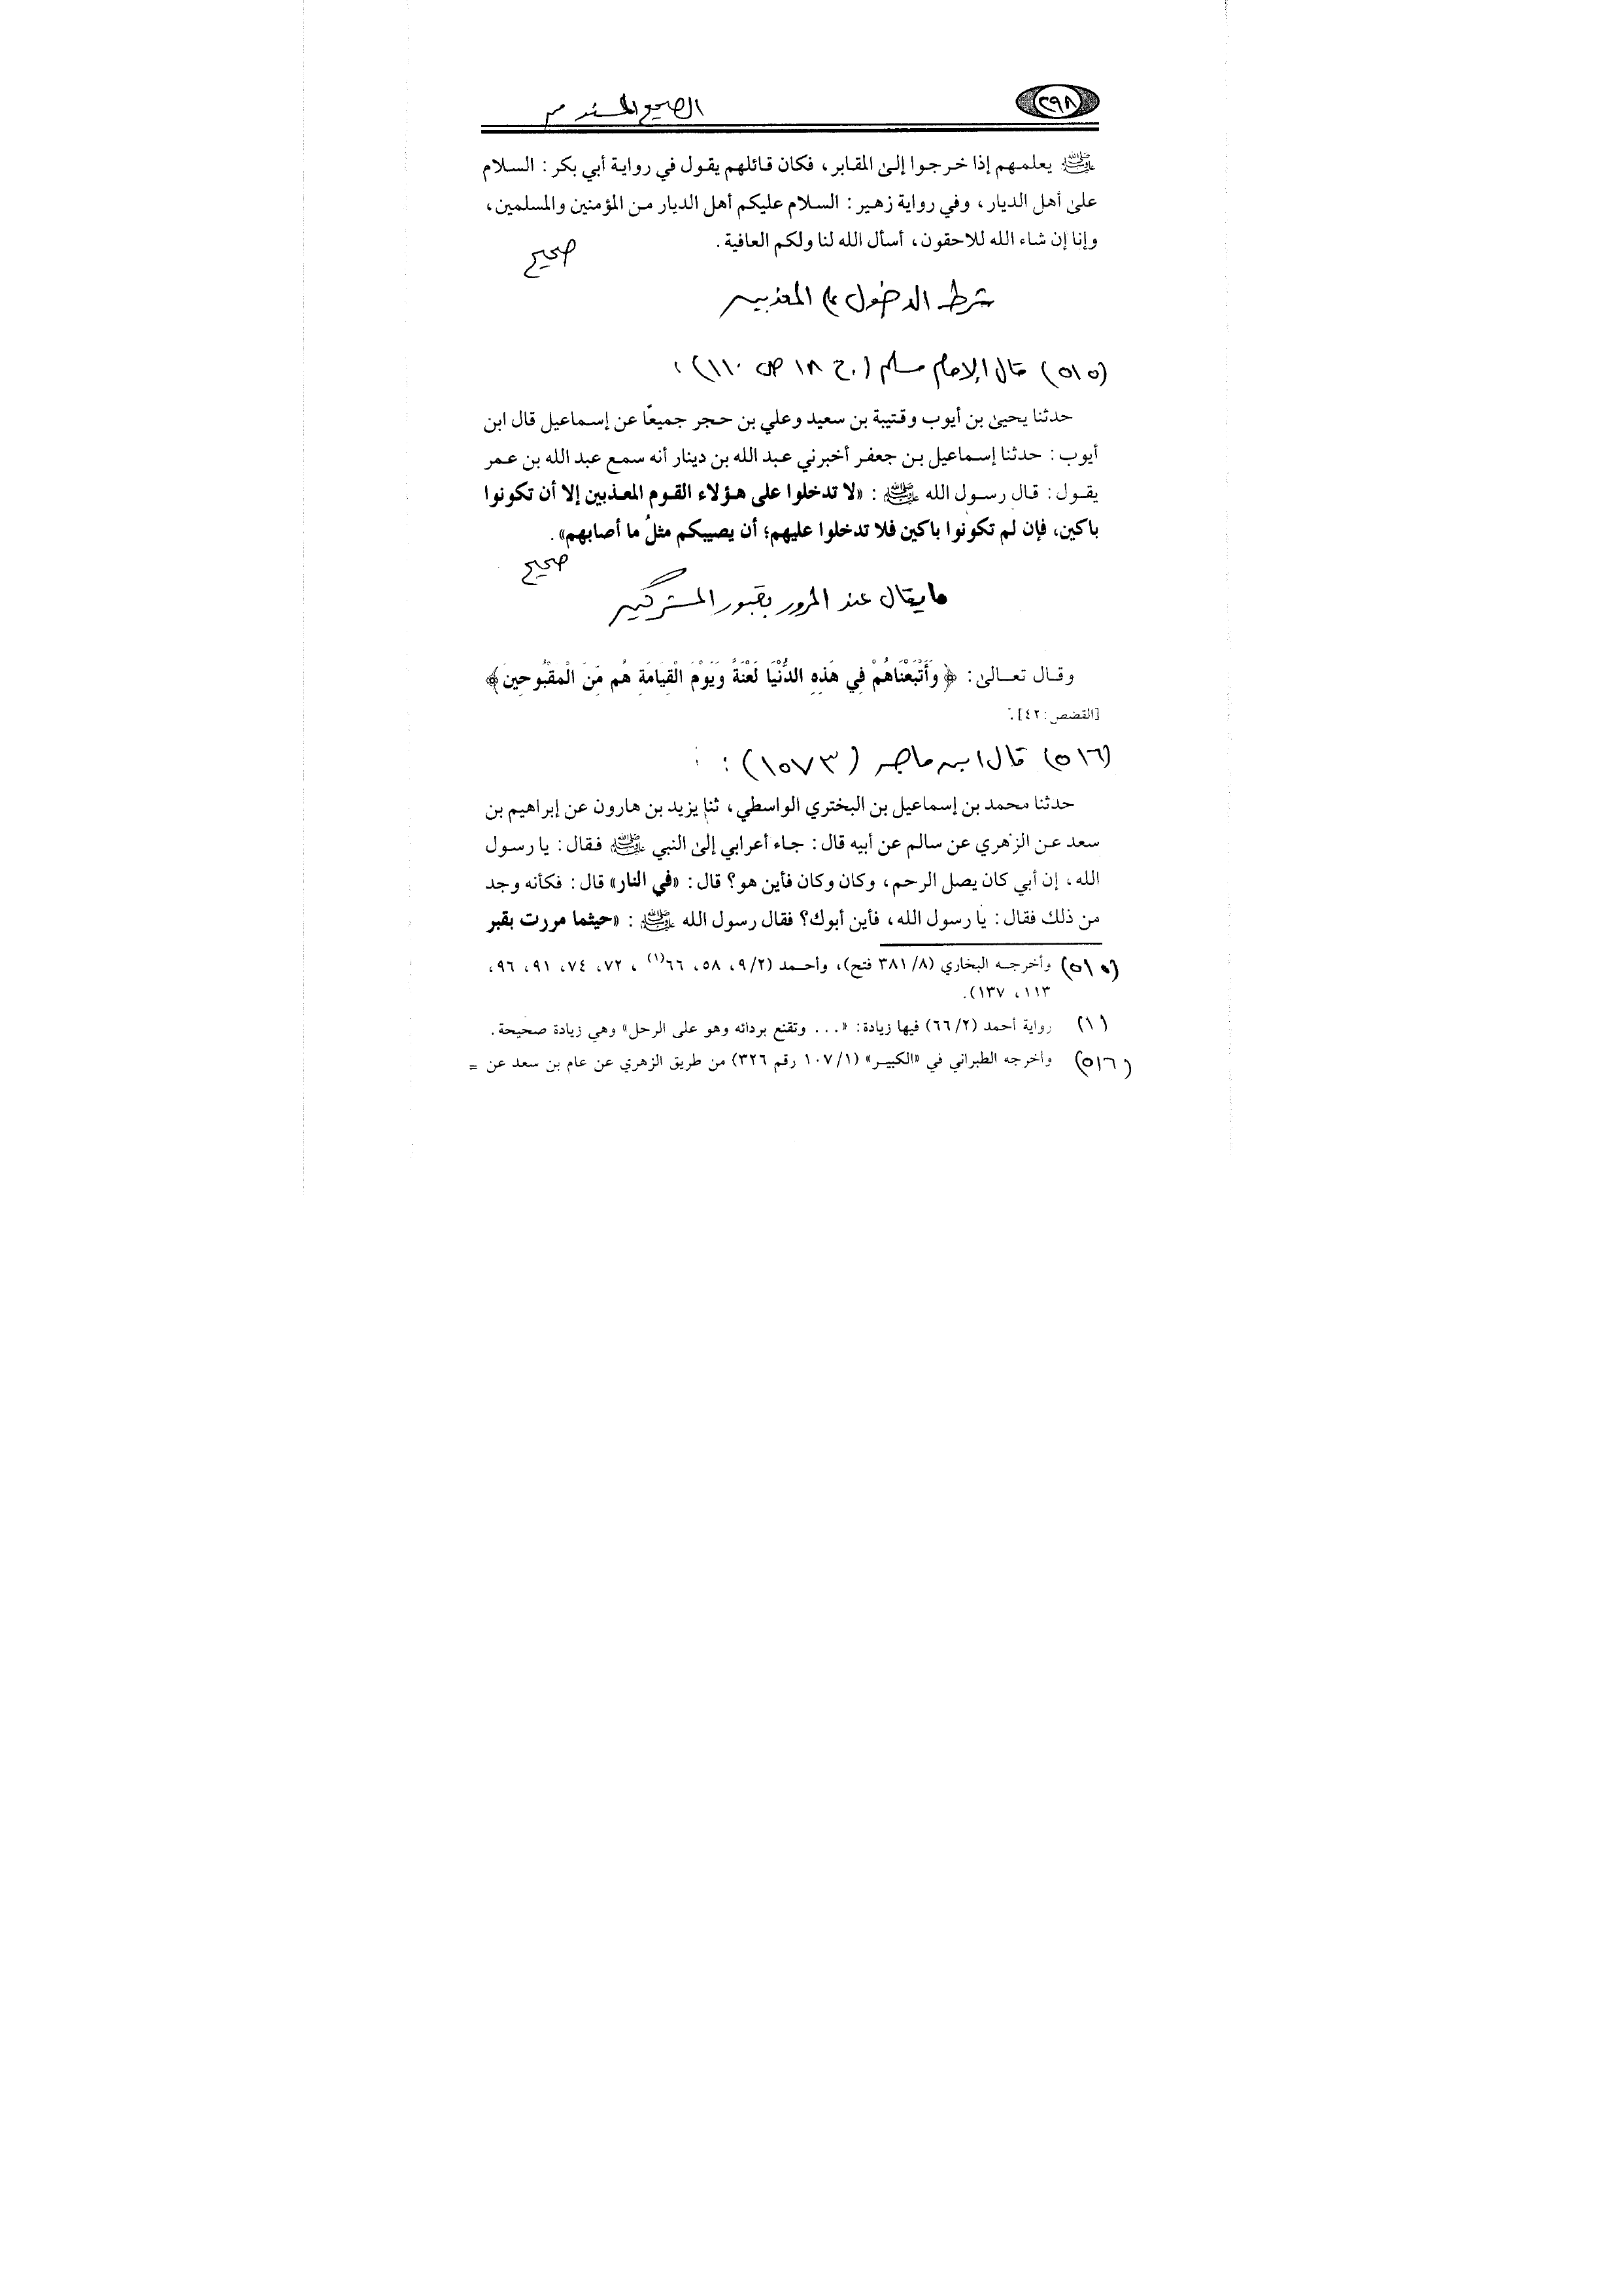 ٢٩٨
الصحيح المسند من
ﷺ يعلمهم إذا خرجوا إلىٰ المقابر، فكان قائلهم يقول في رواية أبي بكر: السلام
علىٰ أهل الديار، وفي رواية زهير: السلام عليكم أهل الديار من المؤمنين والمسلمين،
وإنا إن شاء الله للاحقون، أسأل الله لنا ولكم العافية.
صحيح
شرط الدخول على المعذبين
(٥١٥) قال الإمام مسلم (ج ١٨ ص ١١٠):
حدثنا يحيىٰ بن أيوب وقتيبة بن سعيد وعلي بن حجر جميعًا عن إسماعيل قال ابن
أيوب: حدثنا إسماعيل بن جعفر أخبرني عبد الله بن دينار أنه سمع عبد الله بن عمر
يقول: قال رسول الله ﷺ: «لا تدخلوا على هؤلاء القوم المعذبين إلا أن تكونوا
باكين، فإن لم تكونوا باكين فلا تدخلوا عليهم؛ أن يصيبكم مثلُ ما أصابهم».
صحيح
ما يقال عند المرور بقبور المشركين
وقال تعالىٰ: ﴿وَأَتْبَعْنَاهُمْ فِي هَذِهِ الدُّنْيَا لَعْنَةً وَيَوْمَ الْقِيَامَةِ هُم مِّنَ الْمَقْبُوحِينَ﴾
[القصص: ٤٢].
(٥١٦) قال ابن ماجه (١٥٧٣):
حدثنا محمد بن إسماعيل بن البختري الواسطي، ثنا يزيد بن هارون عن إبراهيم بن
سعد عن الزهري عن سالم عن أبيه قال: جاء أعرابي إلىٰ النبي ﷺ فقال: يا رسول
الله، إن أبي كان يصل الرحم، وكان وكان فأين هو؟ قال: «في النار» قال: فكأنه وجد
من ذلك فقال: يا رسول الله، فأين أبوك؟ فقال رسول الله ﷺ: «حيثما مررت بقبر
(٥١٥) وأخرجه البخاري (٨/ ٣٨١ فتح)، وأحمد (٩/٢، ٥٨، ٦٦(١)، ٧٢، ٧٤، ٩١، ٩٦،
١١٣، ١٣٧).
(١) رواية أحمد (٦٦/٢) فيها زيادة: «... وتقنع بردائه وهو على الرحل» وهي زيادة صحيحة.
(٥١٦) وأخرجه الطبراني في «الكبير» (١٠٧/١ رقم ٣٢٦) من طريق الزهري عن عام بن سعد عن =